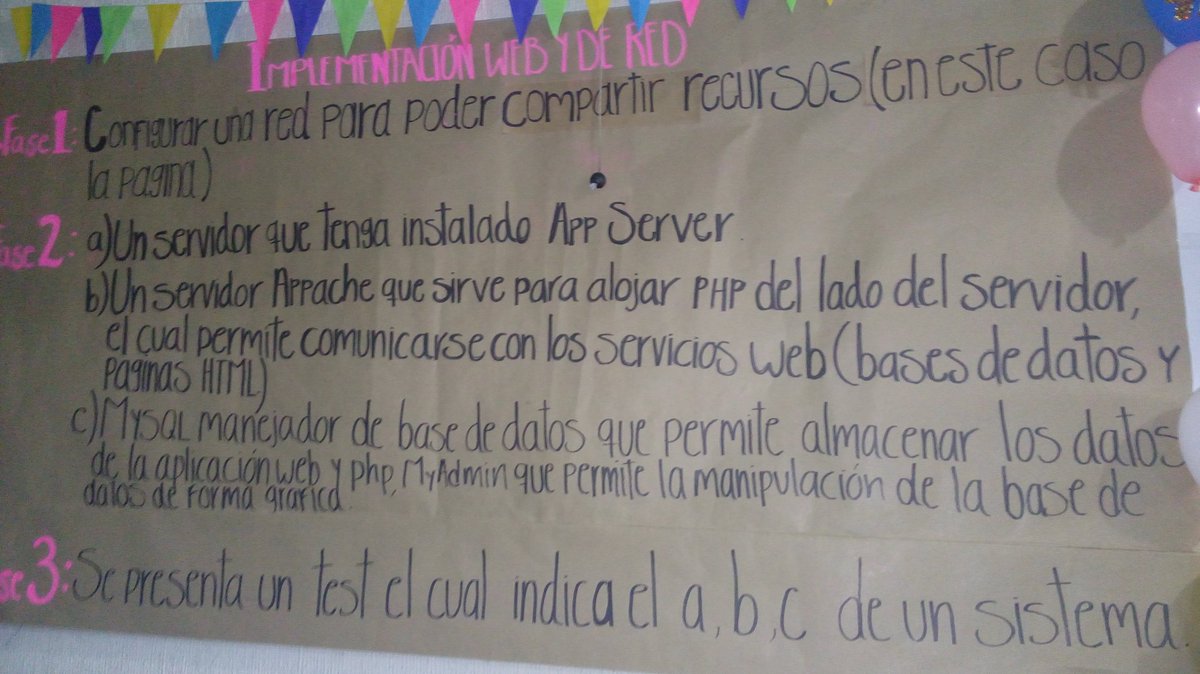 IMPLEMENTACIÓN WEB Y DE RED
Fase 1: Configurar una red para poder compartir recursos (en este caso
la pagina)
ase 2: a) Un servidor que tenga instalado App Server.
b) Un servidor Appache que sirve para alojar PHP del lado del servidor,
el cual permite comunicarse con los servicios web (bases de datos y
paginas HTML)
c) Mysql manejador de base de datos que permite almacenar los datos
de la aplicación web y php, MyAdmin que permite la manipulación de la base de
datos de forma grafica.
se 3: Se presenta un test el cual indica el a, b, c de un sistema.